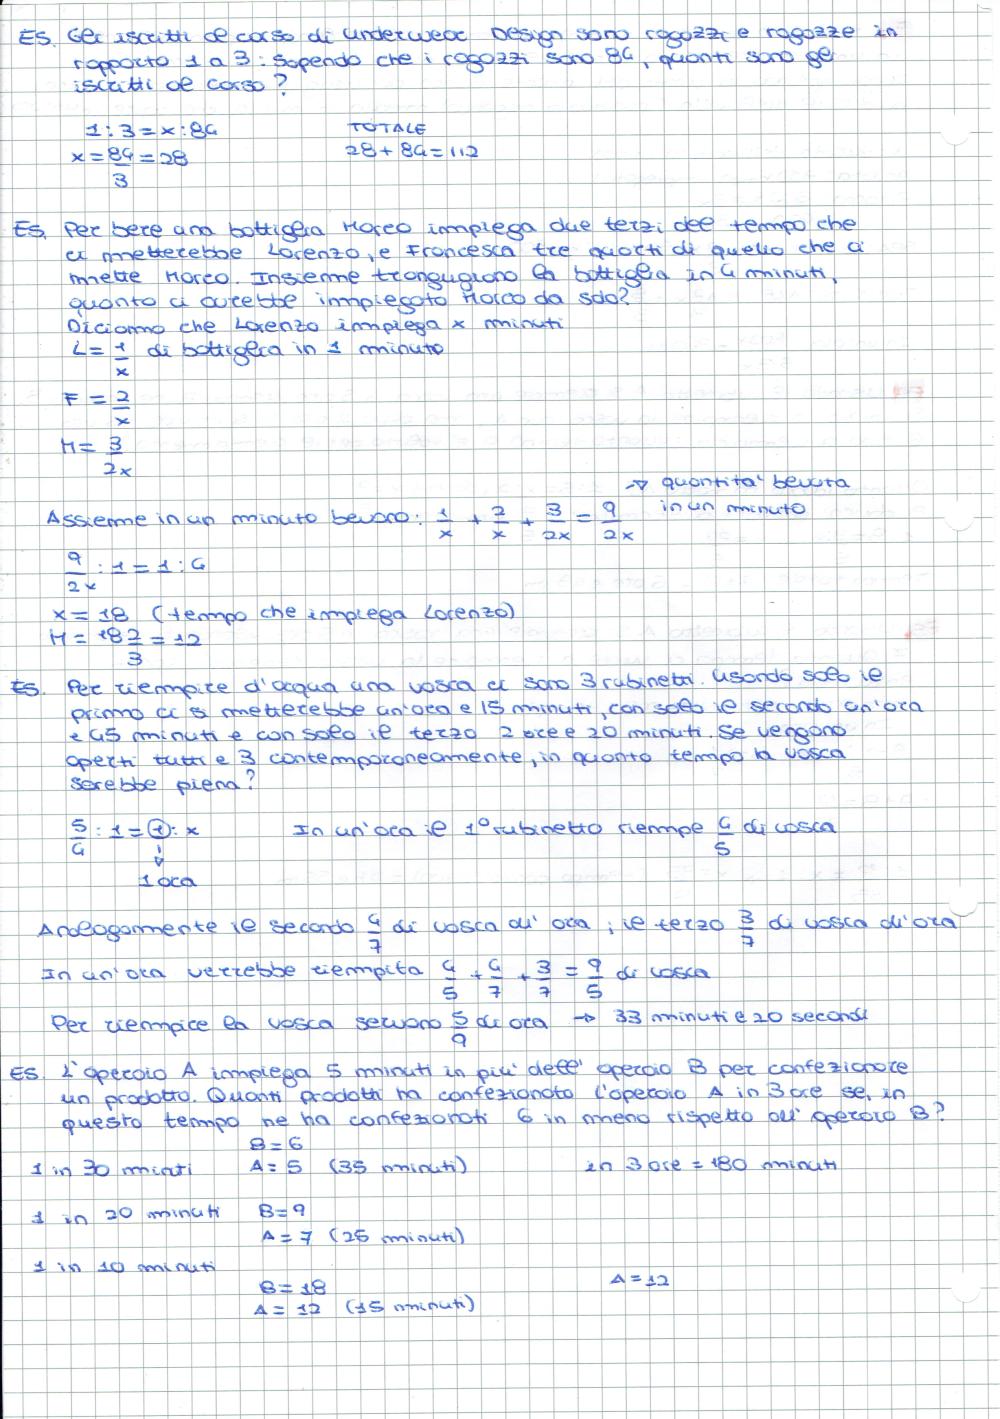 ES. Gli iscritti al corso di underwear Design sono ragazzi e ragazze in
rapporto 1 a 3. Sapendo che i ragazzi sono 84, quanti sono gli
iscritti al corso?
1 : 3 = x : 84
TOTALE
x = 84/3 = 28
28 + 84 = 112
ES. Per bere una bottiglia Marco impiega due terzi del tempo che
ci metterebbe Lorenzo, e Francesca tre quarti di quello che ci
mette Marco. Insieme trangugiano la bottiglia in 4 minuti,
quanto ci avrebbe impiegato Marco da solo?
Diciamo che Lorenzo impiega x minuti
L = 1/x di bottiglia in 1 minuto
F = 2/x
M = 3/2x
→ quantita' bevuta
Assieme in un minuto bevono: 1/x + 2/x + 3/2x = 9/2x in un minuto
9/2x : 1 = 1 : 4
x = 18 (tempo che impiega Lorenzo)
M = 18 2/3 = 12
ES. Per riempire d'acqua una vasca ci sono 3 rubinetti. Usando solo il
primo ci si metterebbe un'ora e 15 minuti, con solo il secondo un'ora
e 45 minuti e con solo il terzo 2 ore e 20 minuti. Se vengono
aperti tutti e 3 contemporaneamente, in quanto tempo la vasca
sarebbe piena?
5/4 : 1 = 1 : x In un'ora il 1° rubinetto riempe 4/5 di vasca
1 ora
Analogamente il secondo 4/7 di vasca all' ora ; il terzo 3/7 di vasca all'ora
In un'ora verrebbe riempita 4/5 + 4/7 + 3/7 = 9/5 di vasca
Per riempire la vasca servono 5/9 di ora → 33 minuti e 20 secondi
ES. L'operaio A impiega 5 minuti in piu' dell' operaio B per confezionare
un prodotto. Quanti prodotti ha confezionato l'operaio A in 3 ore se, in
questo tempo ne ha confezionati 6 in meno rispetto all' operaio B?
B = 6
1 in 30 minuti A = 5 (35 minuti) in 3 ore = 180 minuti
1 in 20 minuti B = 9
A = 7 (25 minuti)
1 in 10 minuti
B = 18 A = 12
A = 12 (15 minuti)